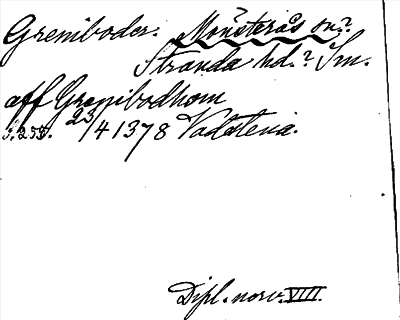 Greniboder. Mönsterås sn.?
Stranda hd.? Sm.
aff Grenibodhom
s. 255. 23/4 1378 Vadstena.
Dipl. norv. VIII.